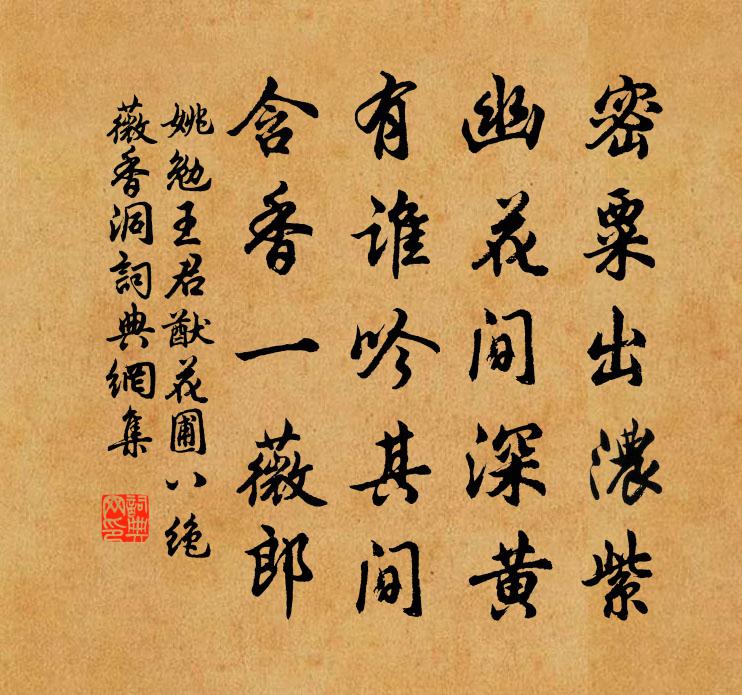 密粟出濃紫
幽花間深黄
有誰吟其間
含香一薇郎
姚勉王君猷花圃八絶
薇香洞詞典網集
詞典網印